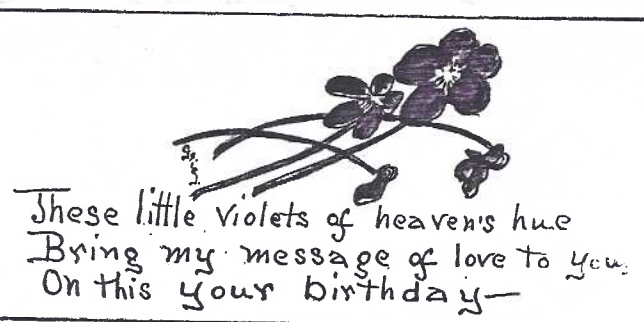 These little violets of heaven's hue
Bring my message of love to you.
On this your birthday—